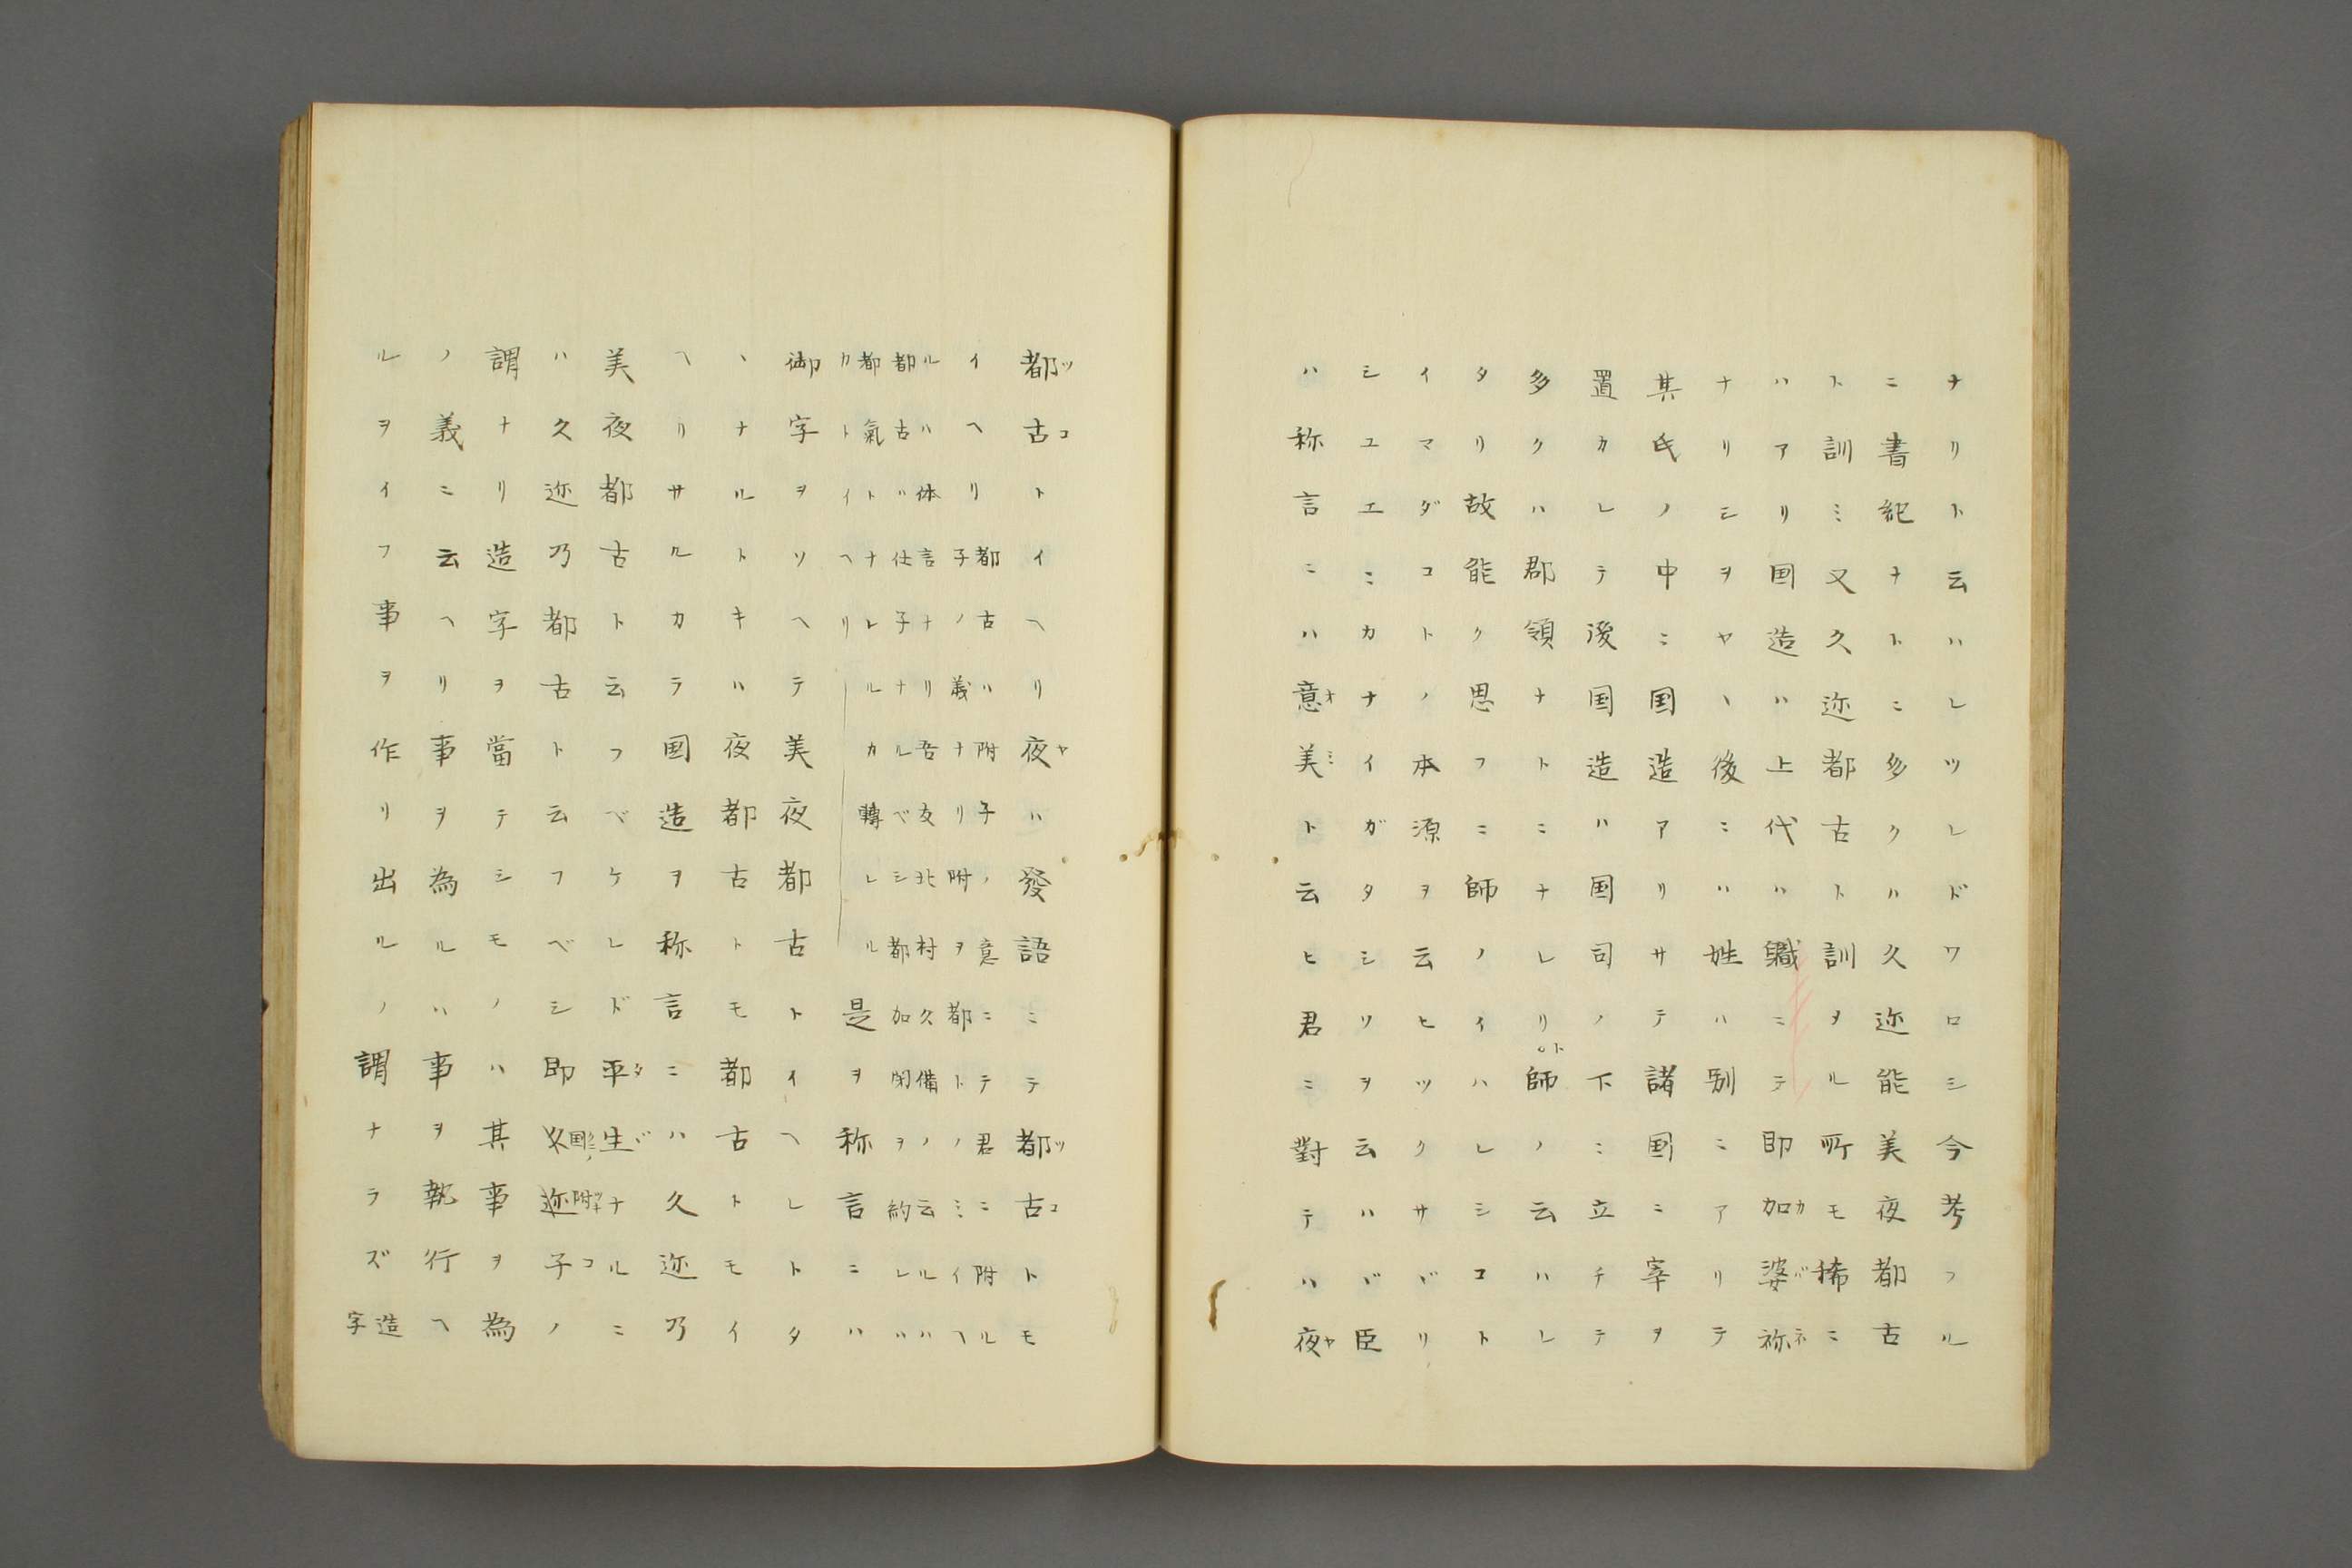 ナリト云ハレツレドワロシ今考フル
ニ書紀ナトニ多クハ久迩能美夜都古
ト訓ミ又久迩都古ト訓ヲル所モ稀ニ
ハアリ国造ハ上代ハ職ニテ即加婆祢
ナリシヲヤヽ後ニハ姓ハ別ニアリテ
其氏ノ中ニ国造アリサテ諸国ニ宰ヲ
置カレテ後国造ハ国司ノ下ニ立チテ
多クハ郡領ナトニナレリト師ノ云ハレ
タリ故能ク思フニ師ノイハレシコト
イマダコトノ本源ヲ云ヒツクサヾリ
シユエニカナイガタシソヲ云ハヾ臣
ハ称言ニハ意美ト云ヒ君ニ對テハ夜
都古トイヘリ夜ハ發語ミテ都古トモ
イヘリ都古ハ附子ノ意ニテ君ニ附ル
子ノ義ナリ附ヲ都トノミイヘ
ルハ体言ナリ吾友北村久備ノ云ルハ
都古ハ仕子ナルベシ都加閇ヲ約レバ
都氣トナレルカ轉レル
カトイヘリ
是ヲ称言ニハ
御字ヲソヘテ美夜都古トイヘレトタ
ヽナルトキハ夜都古トモ都古トモイ
ヘリサルカラ国造ヲ称言ニハ久迩乃
美夜都古ト云フベケレド平生ナルニ
ハ久迩乃都古ト云フベシ即国附子ノ
謂ナリ造字ヲ當テシモノハ其事ヲ為
ノ義ニ云ヘリ事ヲ為ルハ事ヲ執行ヘ
ルヲイフ事ヲ作リ出ルノ謂ナラズ造字